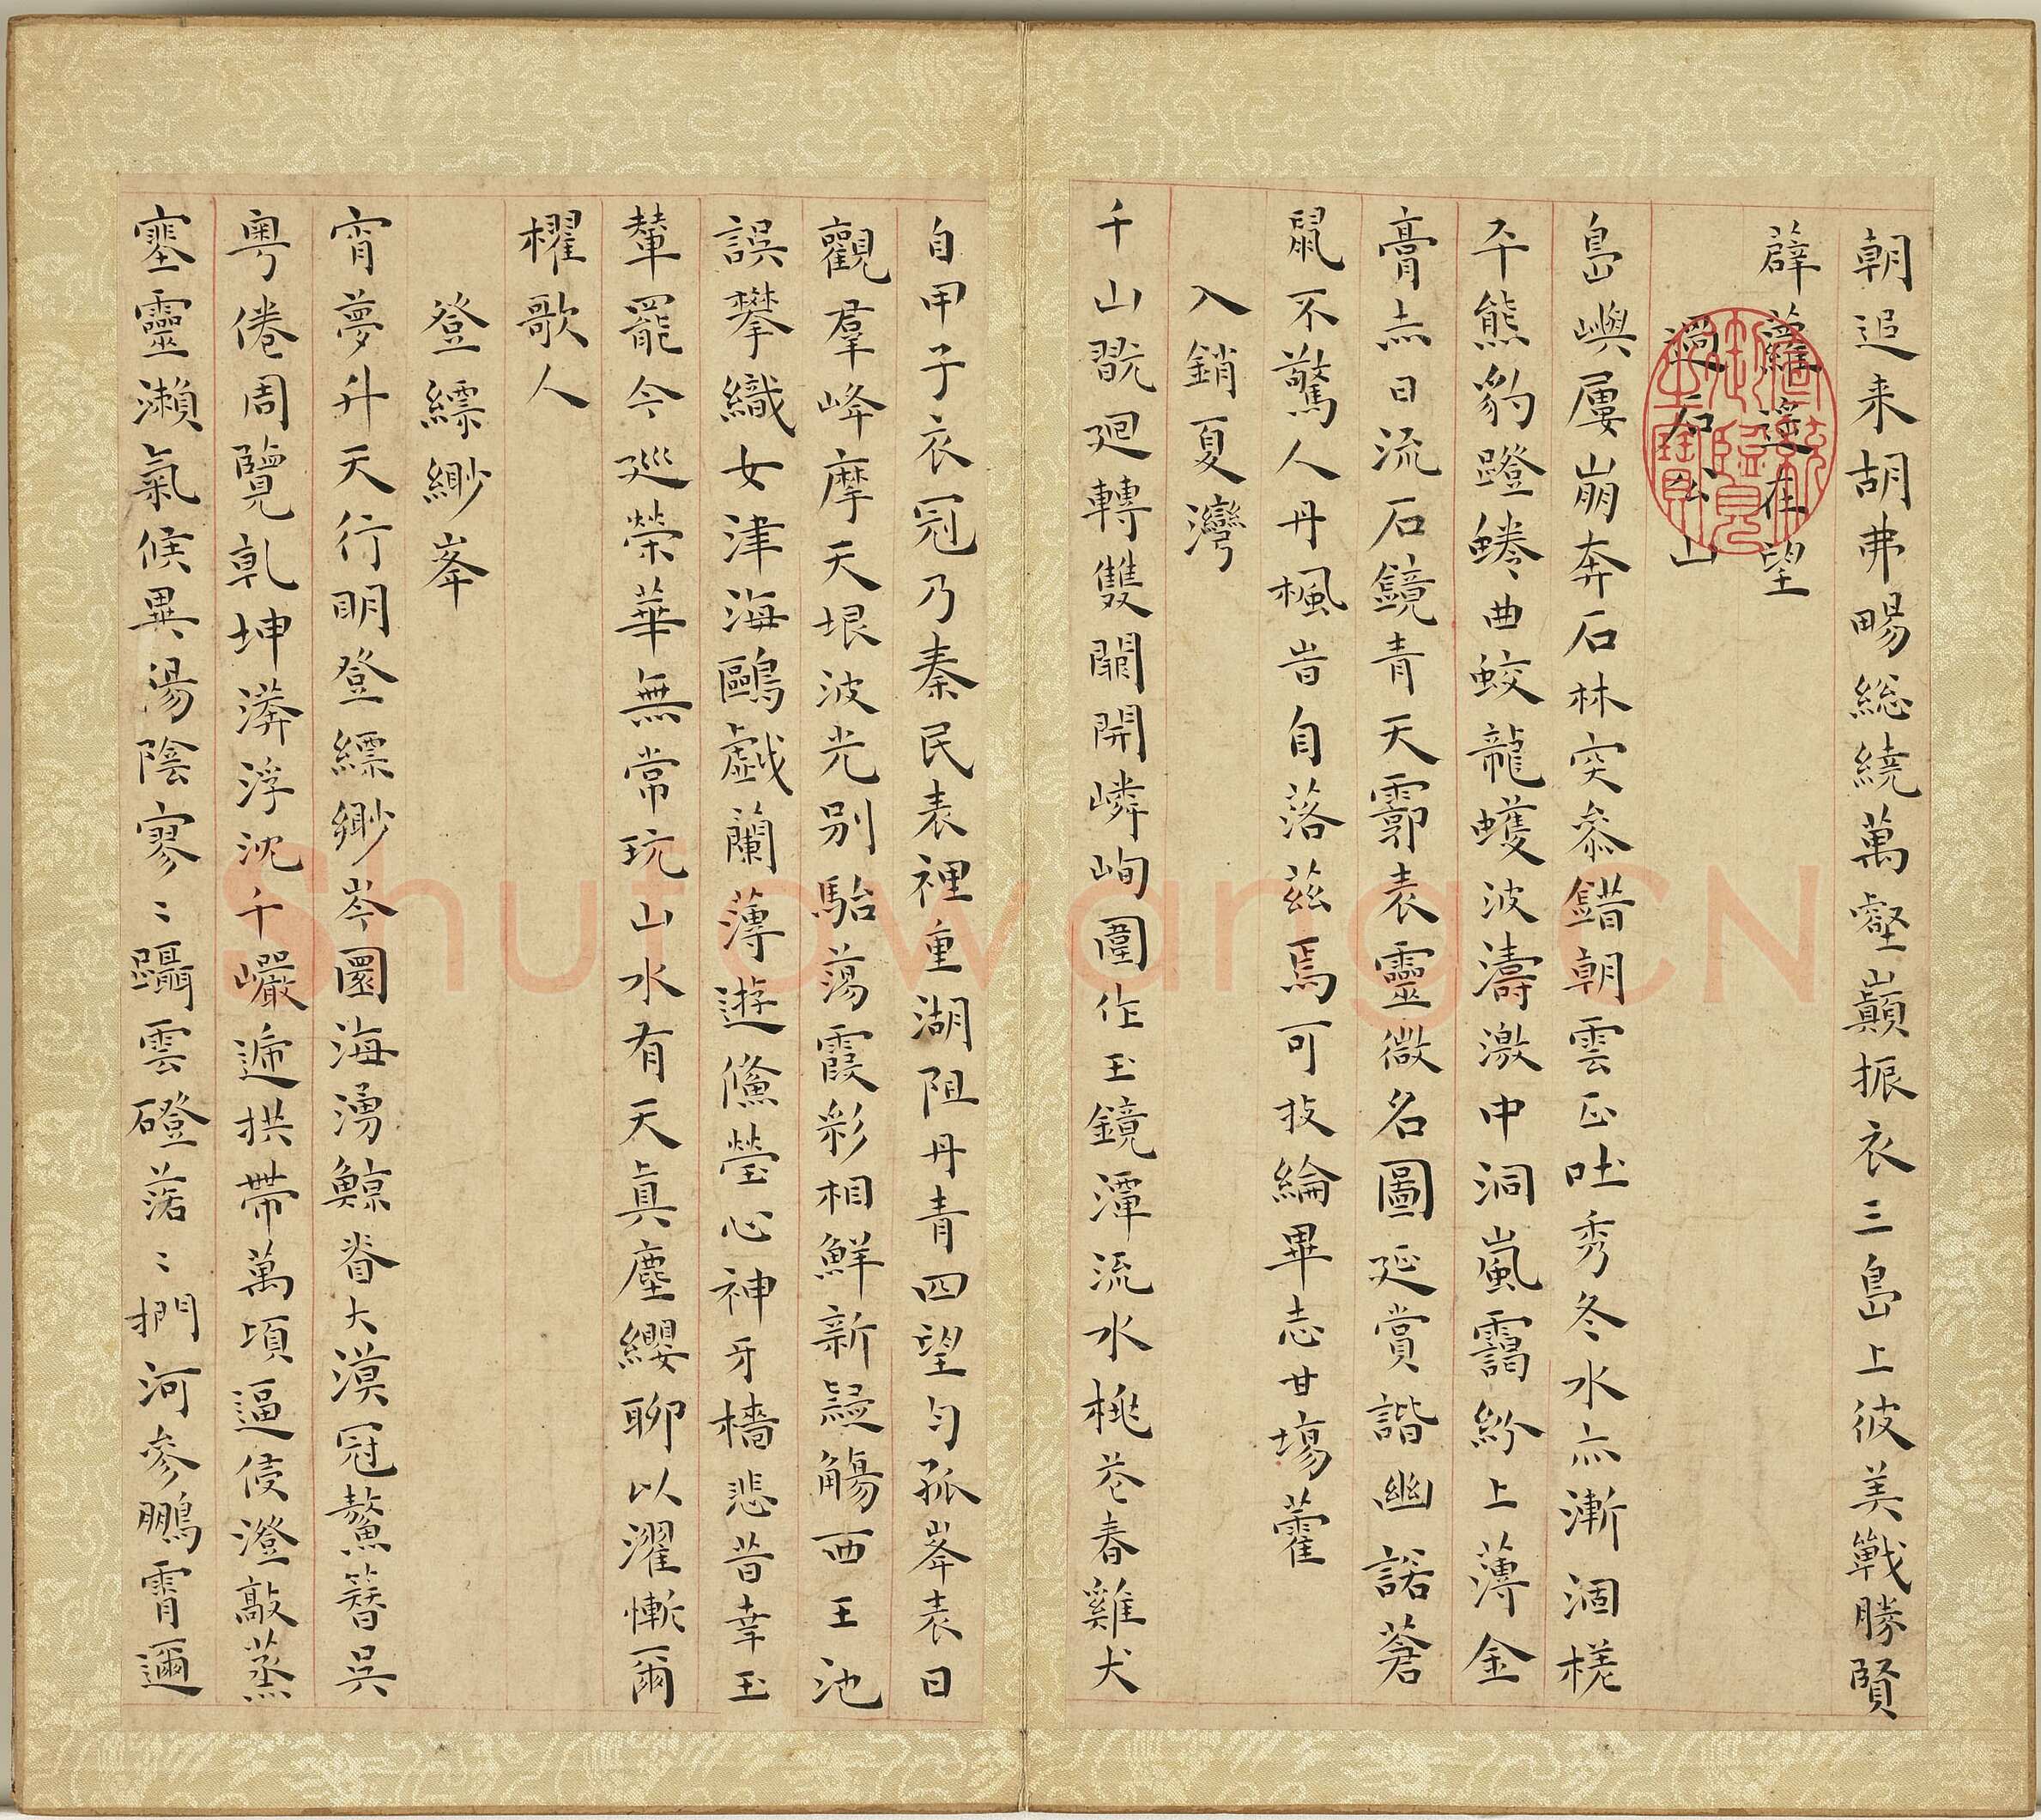 朝追来胡弗暢総繞萬壑巔振衣三島上彼美戰勝賢
薜蘿遥在望
過石公山
島嶼屢崩奔石林突叅錯朝雲正吐秀冬水亦漸涸槎
平熊豹蹬蜷曲蛟龍蠖波濤激中洞嵐靄紛上薄金
膏赤日流石鏡青天霩表靈微名圖延賞諧幽諾蒼
鼠不驚人丹楓旹自落茲焉可投綸畢志甘場藿
入銷夏灣
千山翫廻轉雙闕開嶙峋圍作玉鏡潭流水桃花春雞犬
自甲子衣冠乃秦民表裡重湖阻丹青四望匀孤峯表日
觀羣峰摩天垠波光別駘蕩霞彩相鮮新疑觴西王池
誤攀織女津海鷗戯蘭薄遊儵瑩心神牙檣悲昔幸玉
輦罷今巡榮華無常玩山水有天真塵纓聊以濯慚爾
櫂歌人
登縹緲峯
宵夢升天行明登縹緲岑圜海湧鯨脊大漠冠鰲簪吳
粵倦周覽乹坤漭浮沈千巖遞拱帶萬頃逼侵澄敲蒸
塞靈瀨氣候異湯陰寥〻躡雲磴菭〻捫河參鵬霄邇
御覽之寶
Shufawang.CN